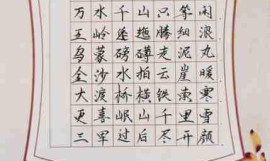 万水千山只等闲
五岭逶迤腾细浪
乌蒙磅礴走泥丸
金沙水拍云崖暖
大渡桥横铁索寒
更喜岷山千里雪
三军过后尽开颜